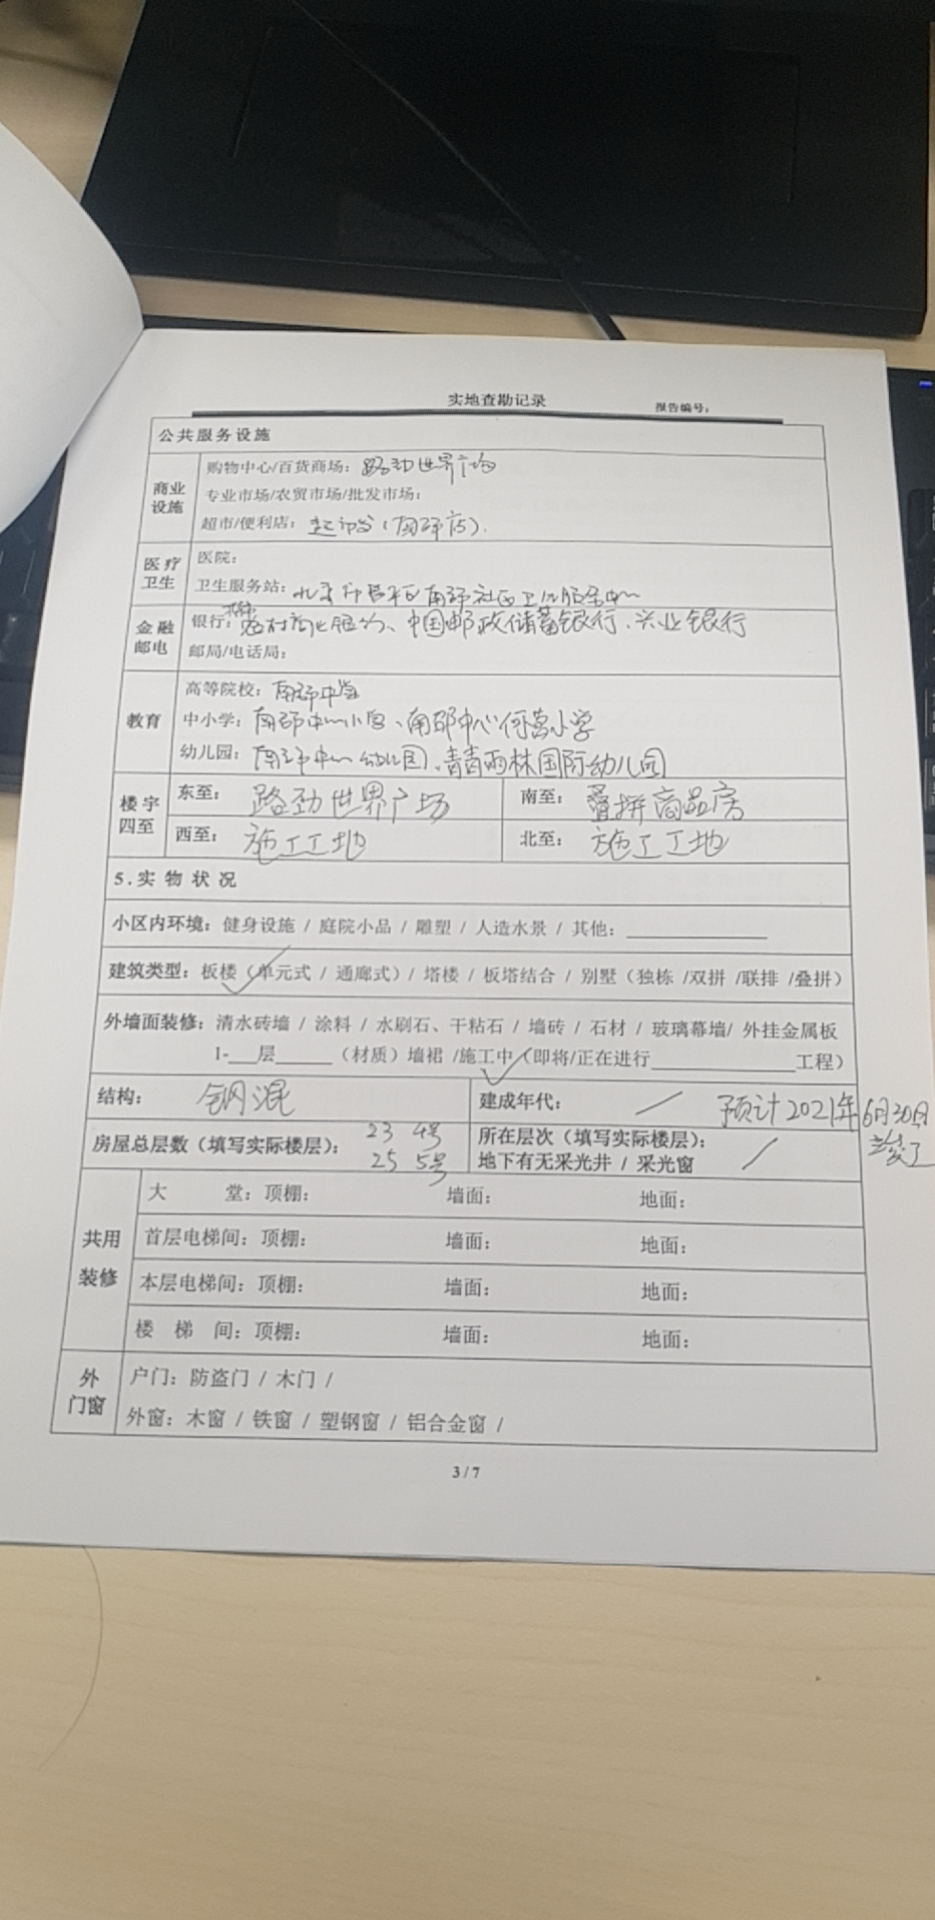 实地查勘记录
报告编号：
公共服务设施
商业设施
购物中心/百货商场：路劲世界广场
专业市场/农贸市场/批发市场：
超市/便利店：超市发（南邵店）.
医疗卫生
医院：
卫生服务站：北京市昌平区南邵社区卫生服务中心
金融邮电
银行：农村商业银行、中国邮政储蓄银行、兴业银行
邮局/电话局：
教育
高等院校：南邵中学
中小学：南邵中心小学、南邵中心何营小学
幼儿园：南邵中心幼儿园、青青雨林国际幼儿园
楼宇四至
东至：路劲世界广场 南至：叠拼商品房
西至：施工工地 北至：施工工地
5.实物状况
小区内环境：健身设施 / 庭院小品 / 雕塑 / 人造水景 / 其他：
建筑类型：板楼（单元式 / 通廊式）/ 塔楼 / 板塔结合 / 别墅（独栋 /双拼 /联排 /叠拼）
外墙面装修：清水砖墙 / 涂料 / 水刷石、干粘石 / 墙砖 / 石材 / 玻璃幕墙/ 外挂金属板
1-___层______（材质）墙裙 /施工中（即将/正在进行______________工程）
结构：钢混 建成年代： / 预计2021年6月30日
竣工
房屋总层数（填写实际楼层）：23 4号
25 5号
所在层次（填写实际楼层）：
地下有无采光井 / 采光窗 /
共用装修
大堂：顶棚： 墙面： 地面：
首层电梯间：顶棚： 墙面： 地面：
本层电梯间：顶棚： 墙面： 地面：
楼梯间：顶棚： 墙面： 地面：
外门窗
户门：防盗门 / 木门 /
外窗：木窗 / 铁窗 / 塑钢窗 / 铝合金窗 /
3/7